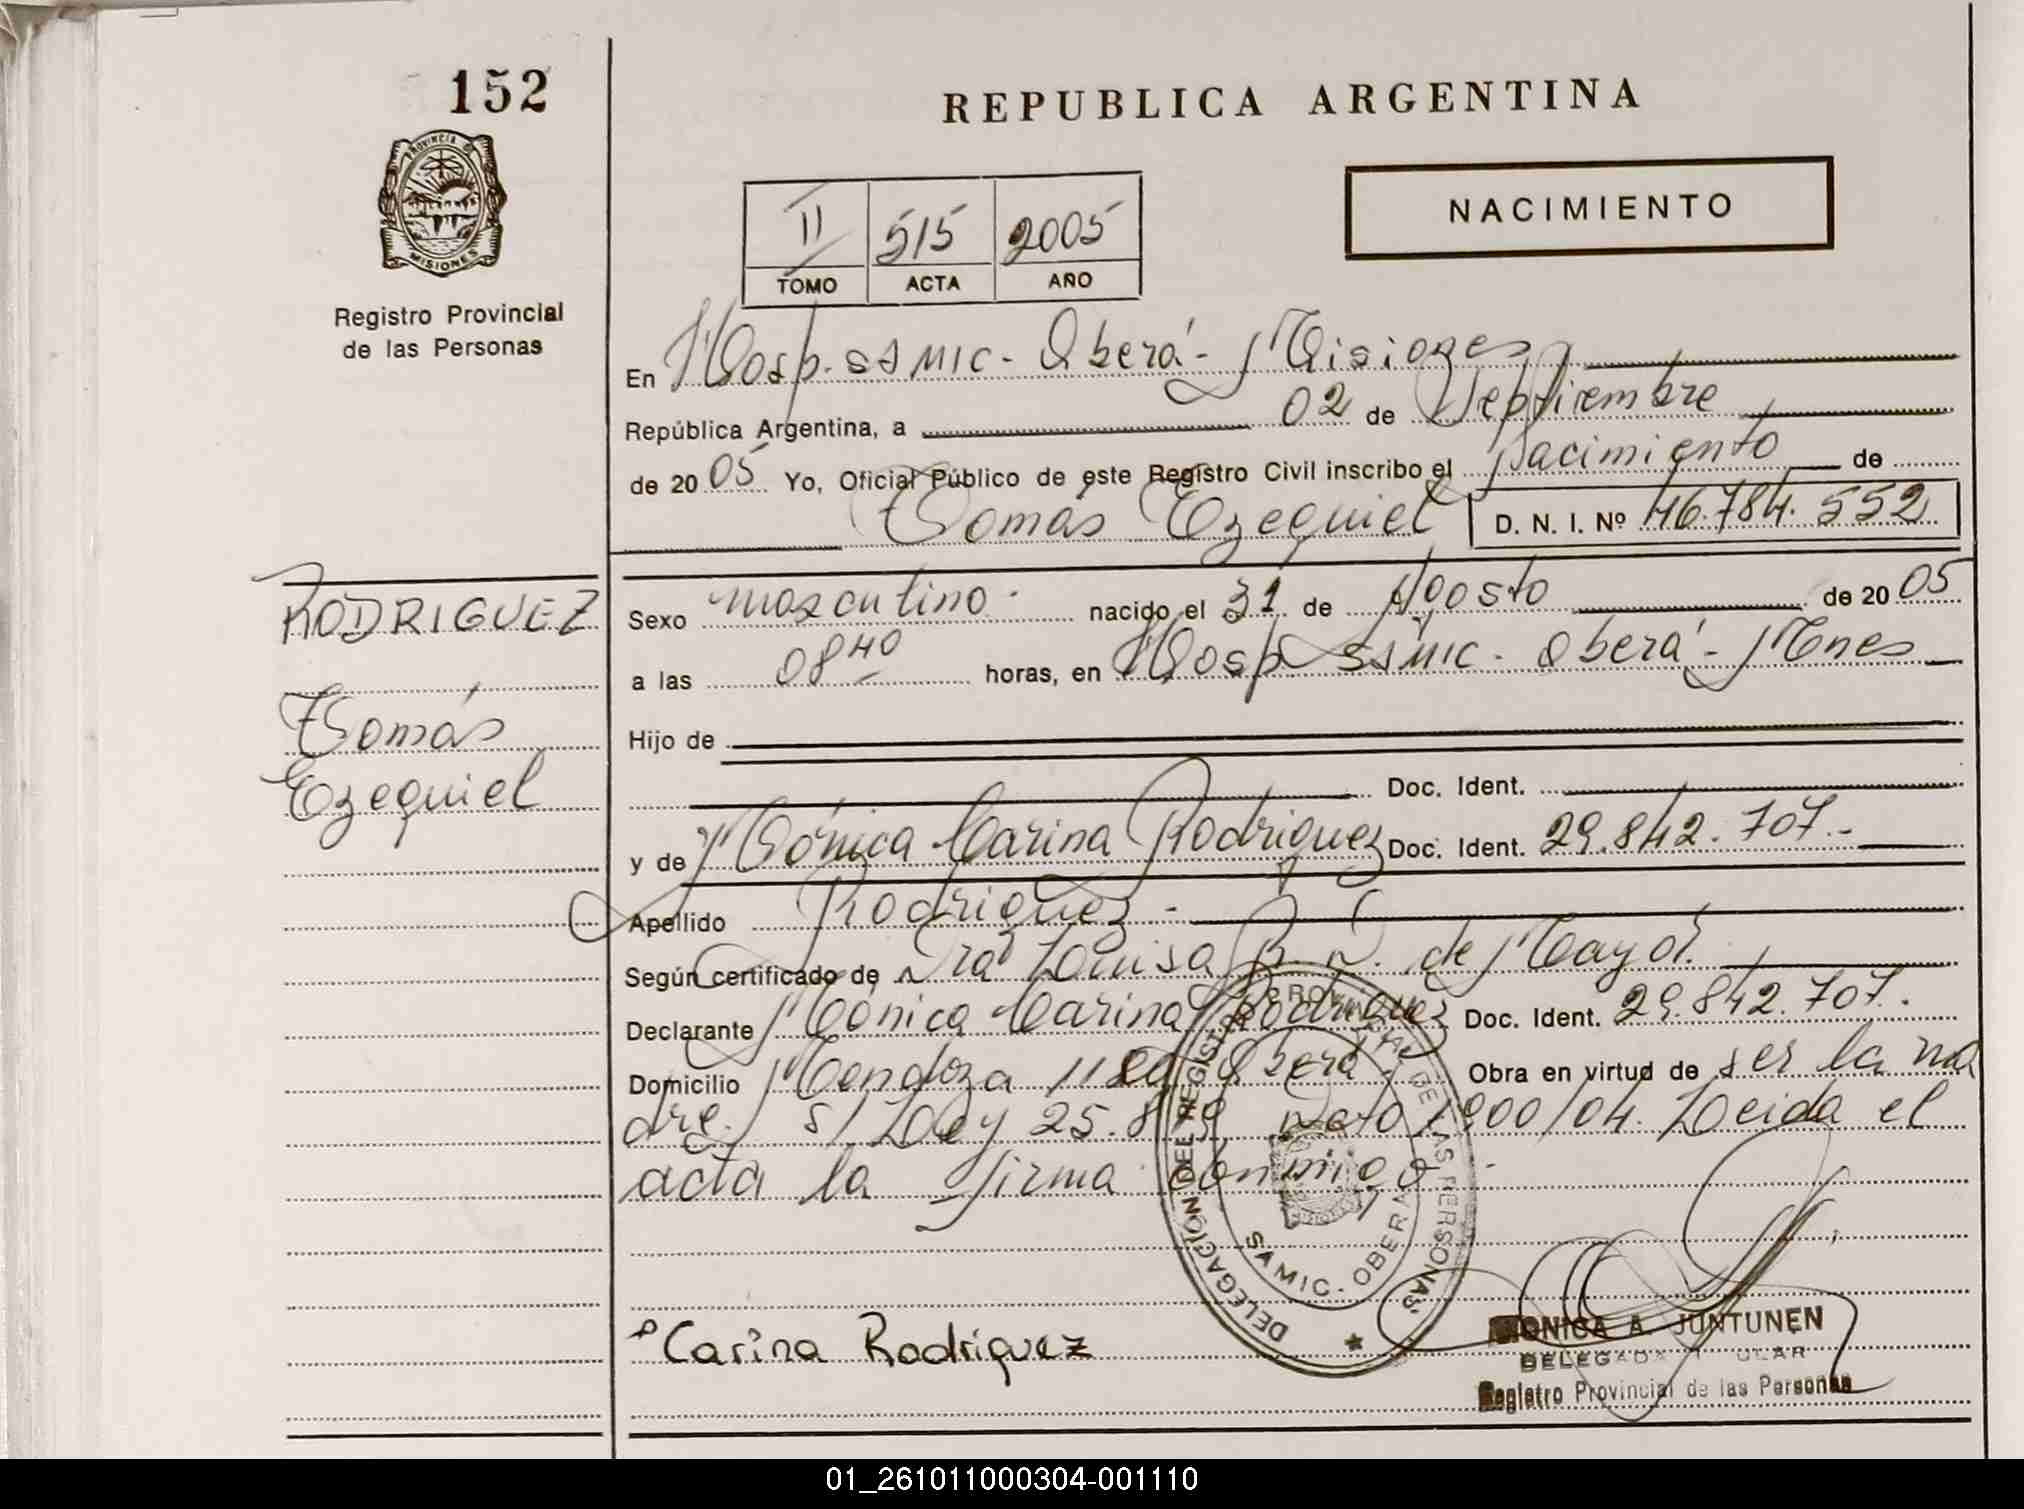 152
REPUBLICA ARGENTINA
PROVINCIA DE
MISIONES
Registro Provincial
de las Personas
II 515 2005
TOMO ACTA AÑO
NACIMIENTO
En Hosp. SAMIC - Oberá - Misiones
República Argentina, a 02 de Septiembre
de 2005 Yo, Oficial Público de este Registro Civil inscribo el Nacimiento de
Tomás Ezequiel D. N. I. Nº 46.784.552
RODRIGUEZ
Tomás
Ezequiel
Sexo masculino nacido el 31 de Agosto de 2005
a las 08 40 horas, en Hosp SAMIC - Oberá - Mnes
Hijo de
Doc. Ident.
y de Mónica Carina Rodriguez Doc. Ident. 29.842.707.-
Apellido Rodriguez -
Según certificado de Dra Luisa B. D. de Mayol.
Declarante Mónica Carina Rodriguez Doc. Ident. 29.842.707.
Domicilio Mendoza Oberá Obra en virtud de ser la ma
dre. S/ Ley 25.819 Dcto 1900/04. Leida el
acta la firma conmigo -
DELEGACIÓN DEL REGISTRO PROVINCIAL DE LAS PERSONAS
SAMIC - OBERA
Carina Rodriguez
MONICA A. JUNTUNEN
DELEGADA TITULAR
Registro Provincial de las Personas
01_261011000304-001110